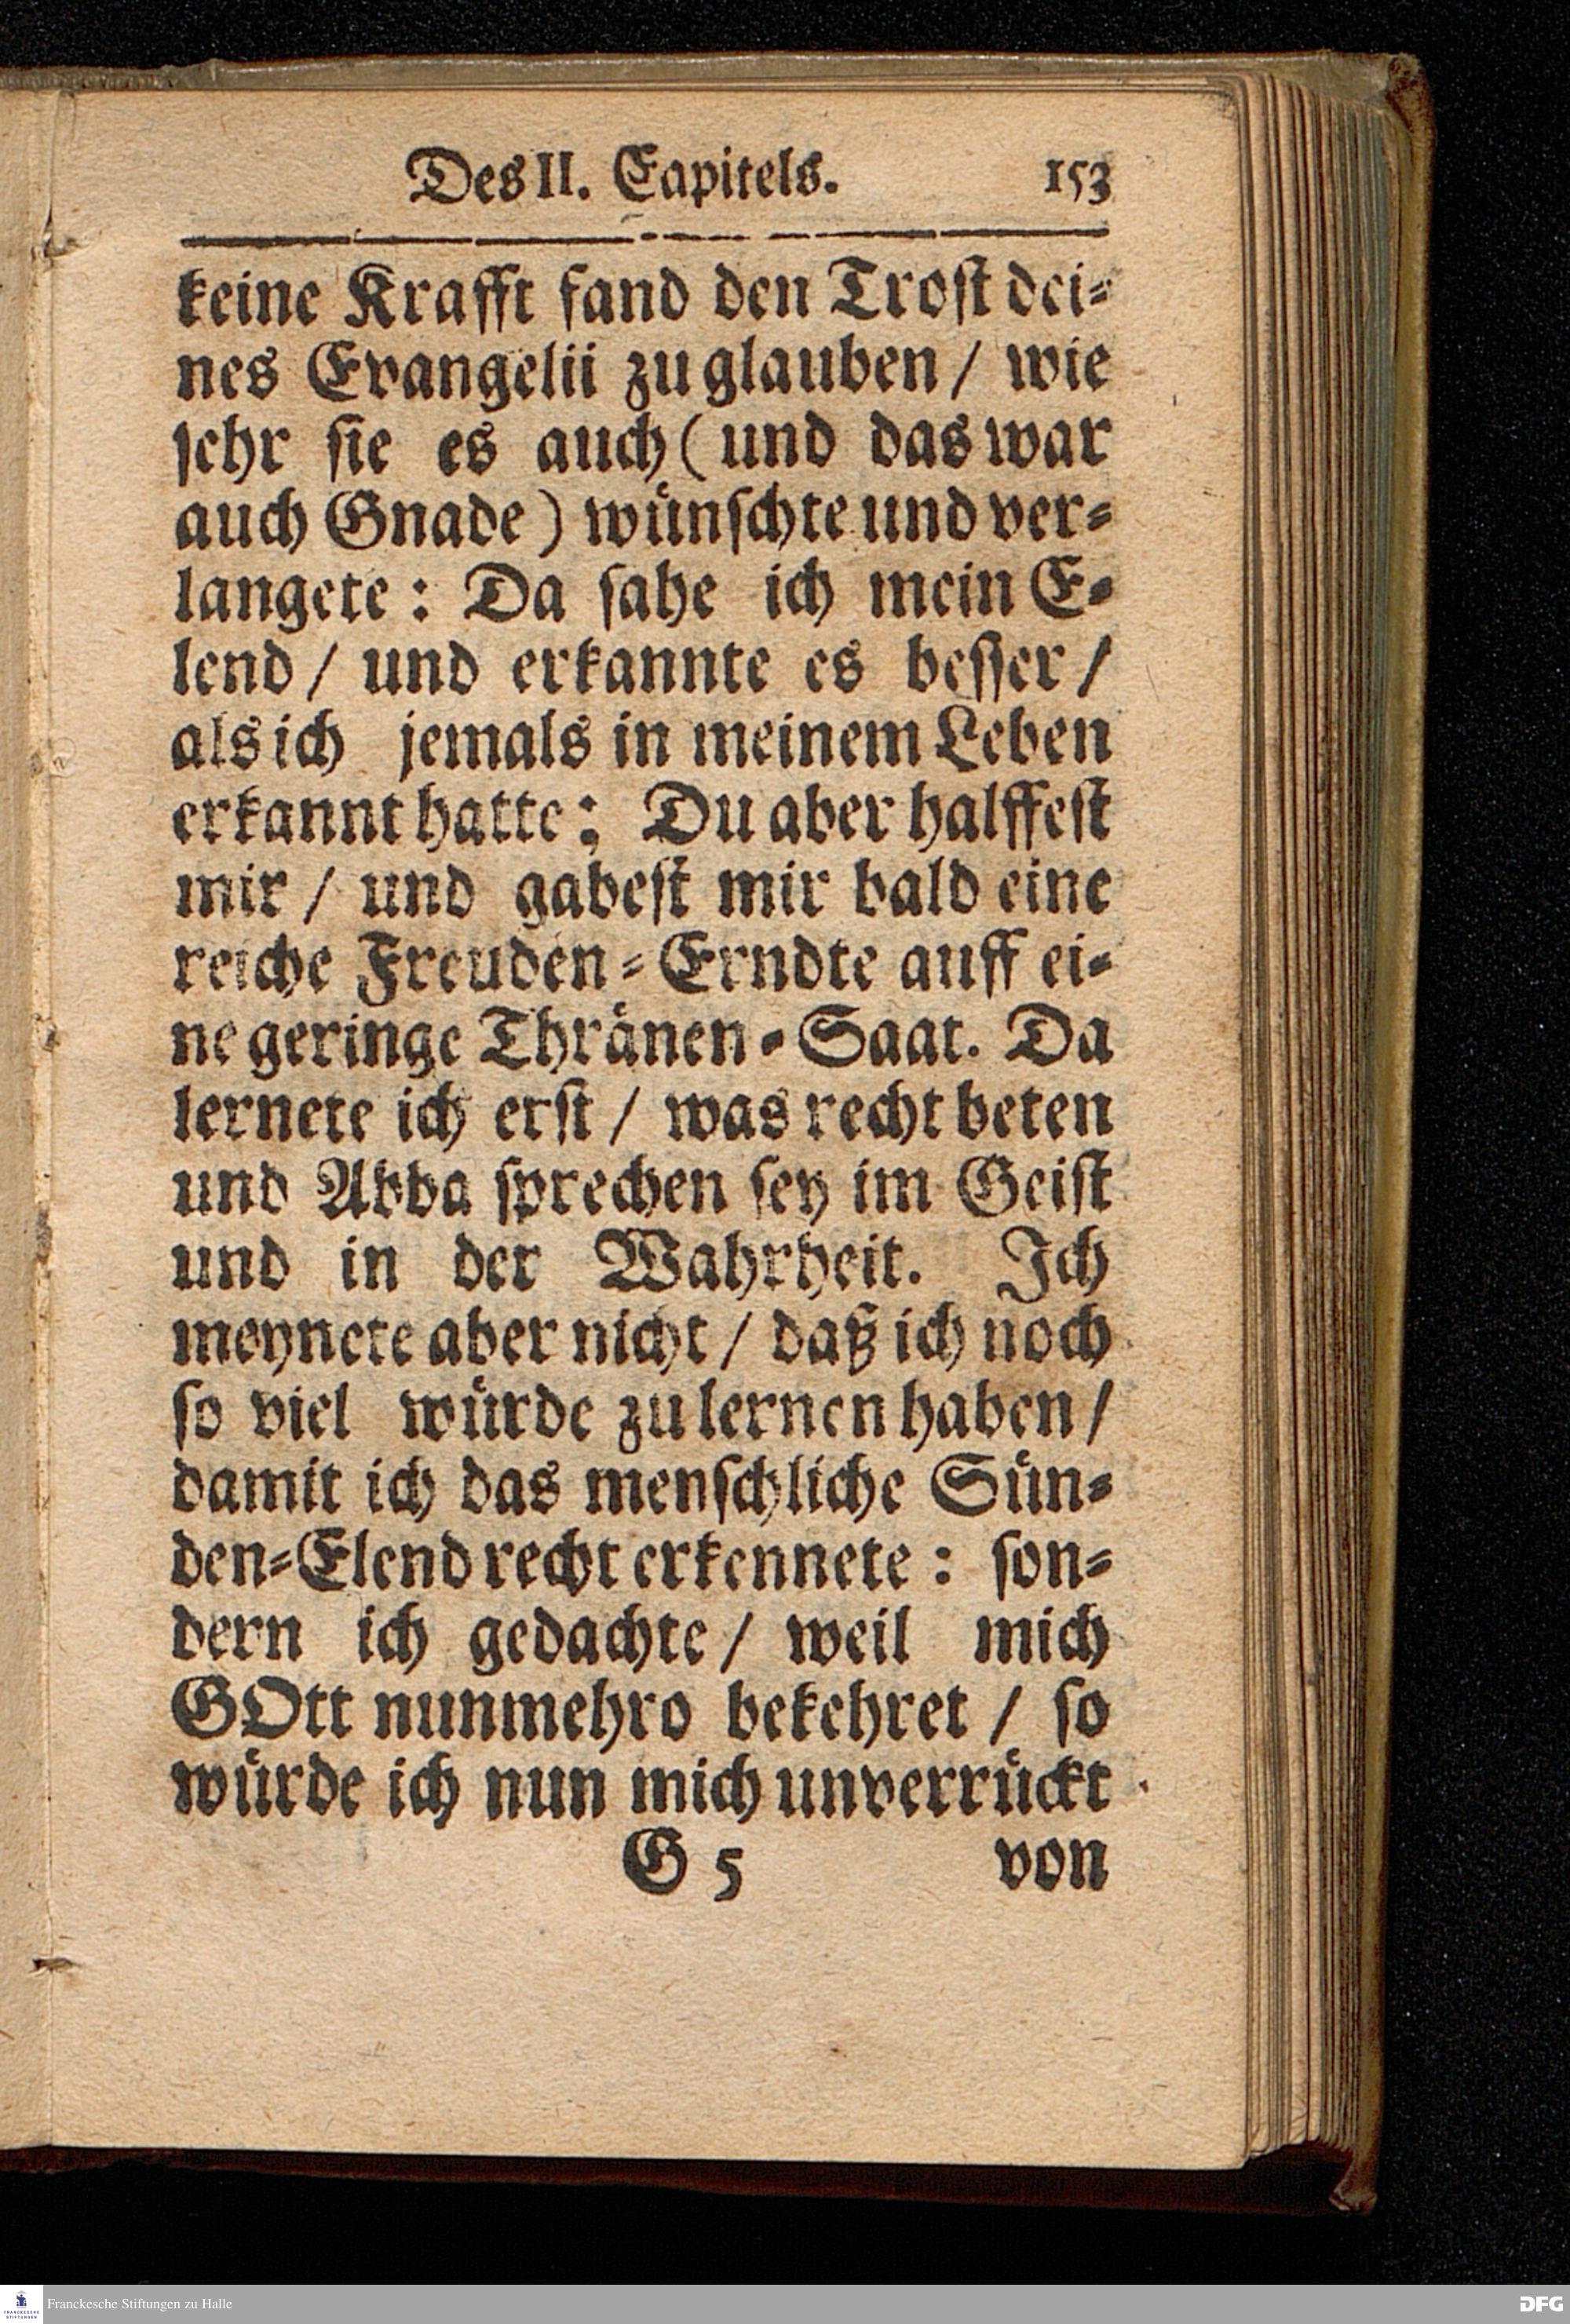 Des II. Capitels. 153
keine Krafft fand den Trost dei-
nes Evangelii zu glauben / wie
sehr sie es auch ( und das war
auch Gnade ) wünschte und ver-
langete : Da sahe ich mein E-
lend / und erkannte es besser /
als ich jemals in meinem Leben
erkannt hatte ; Du aber halffest
mir / und gabest mir bald eine
reiche Freuden-Erndte auff ei-
ne geringe Thränen-Saat. Da
lernete ich erst / was recht beten
und Abba sprechen sey im Geist
und in der Wahrheit. Ich
meynete aber nicht / daß ich noch
so viel würde zu lernen haben /
damit ich das menschliche Sün-
den-Elend recht erkennete : son-
dern ich gedachte / weil mich
GOtt nunmehro bekehret / so
würde ich nun mich unverrückt
G 5 von
Franckesche Stiftungen zu Halle
FRANCKESCHE STIFTUNGEN
DFG